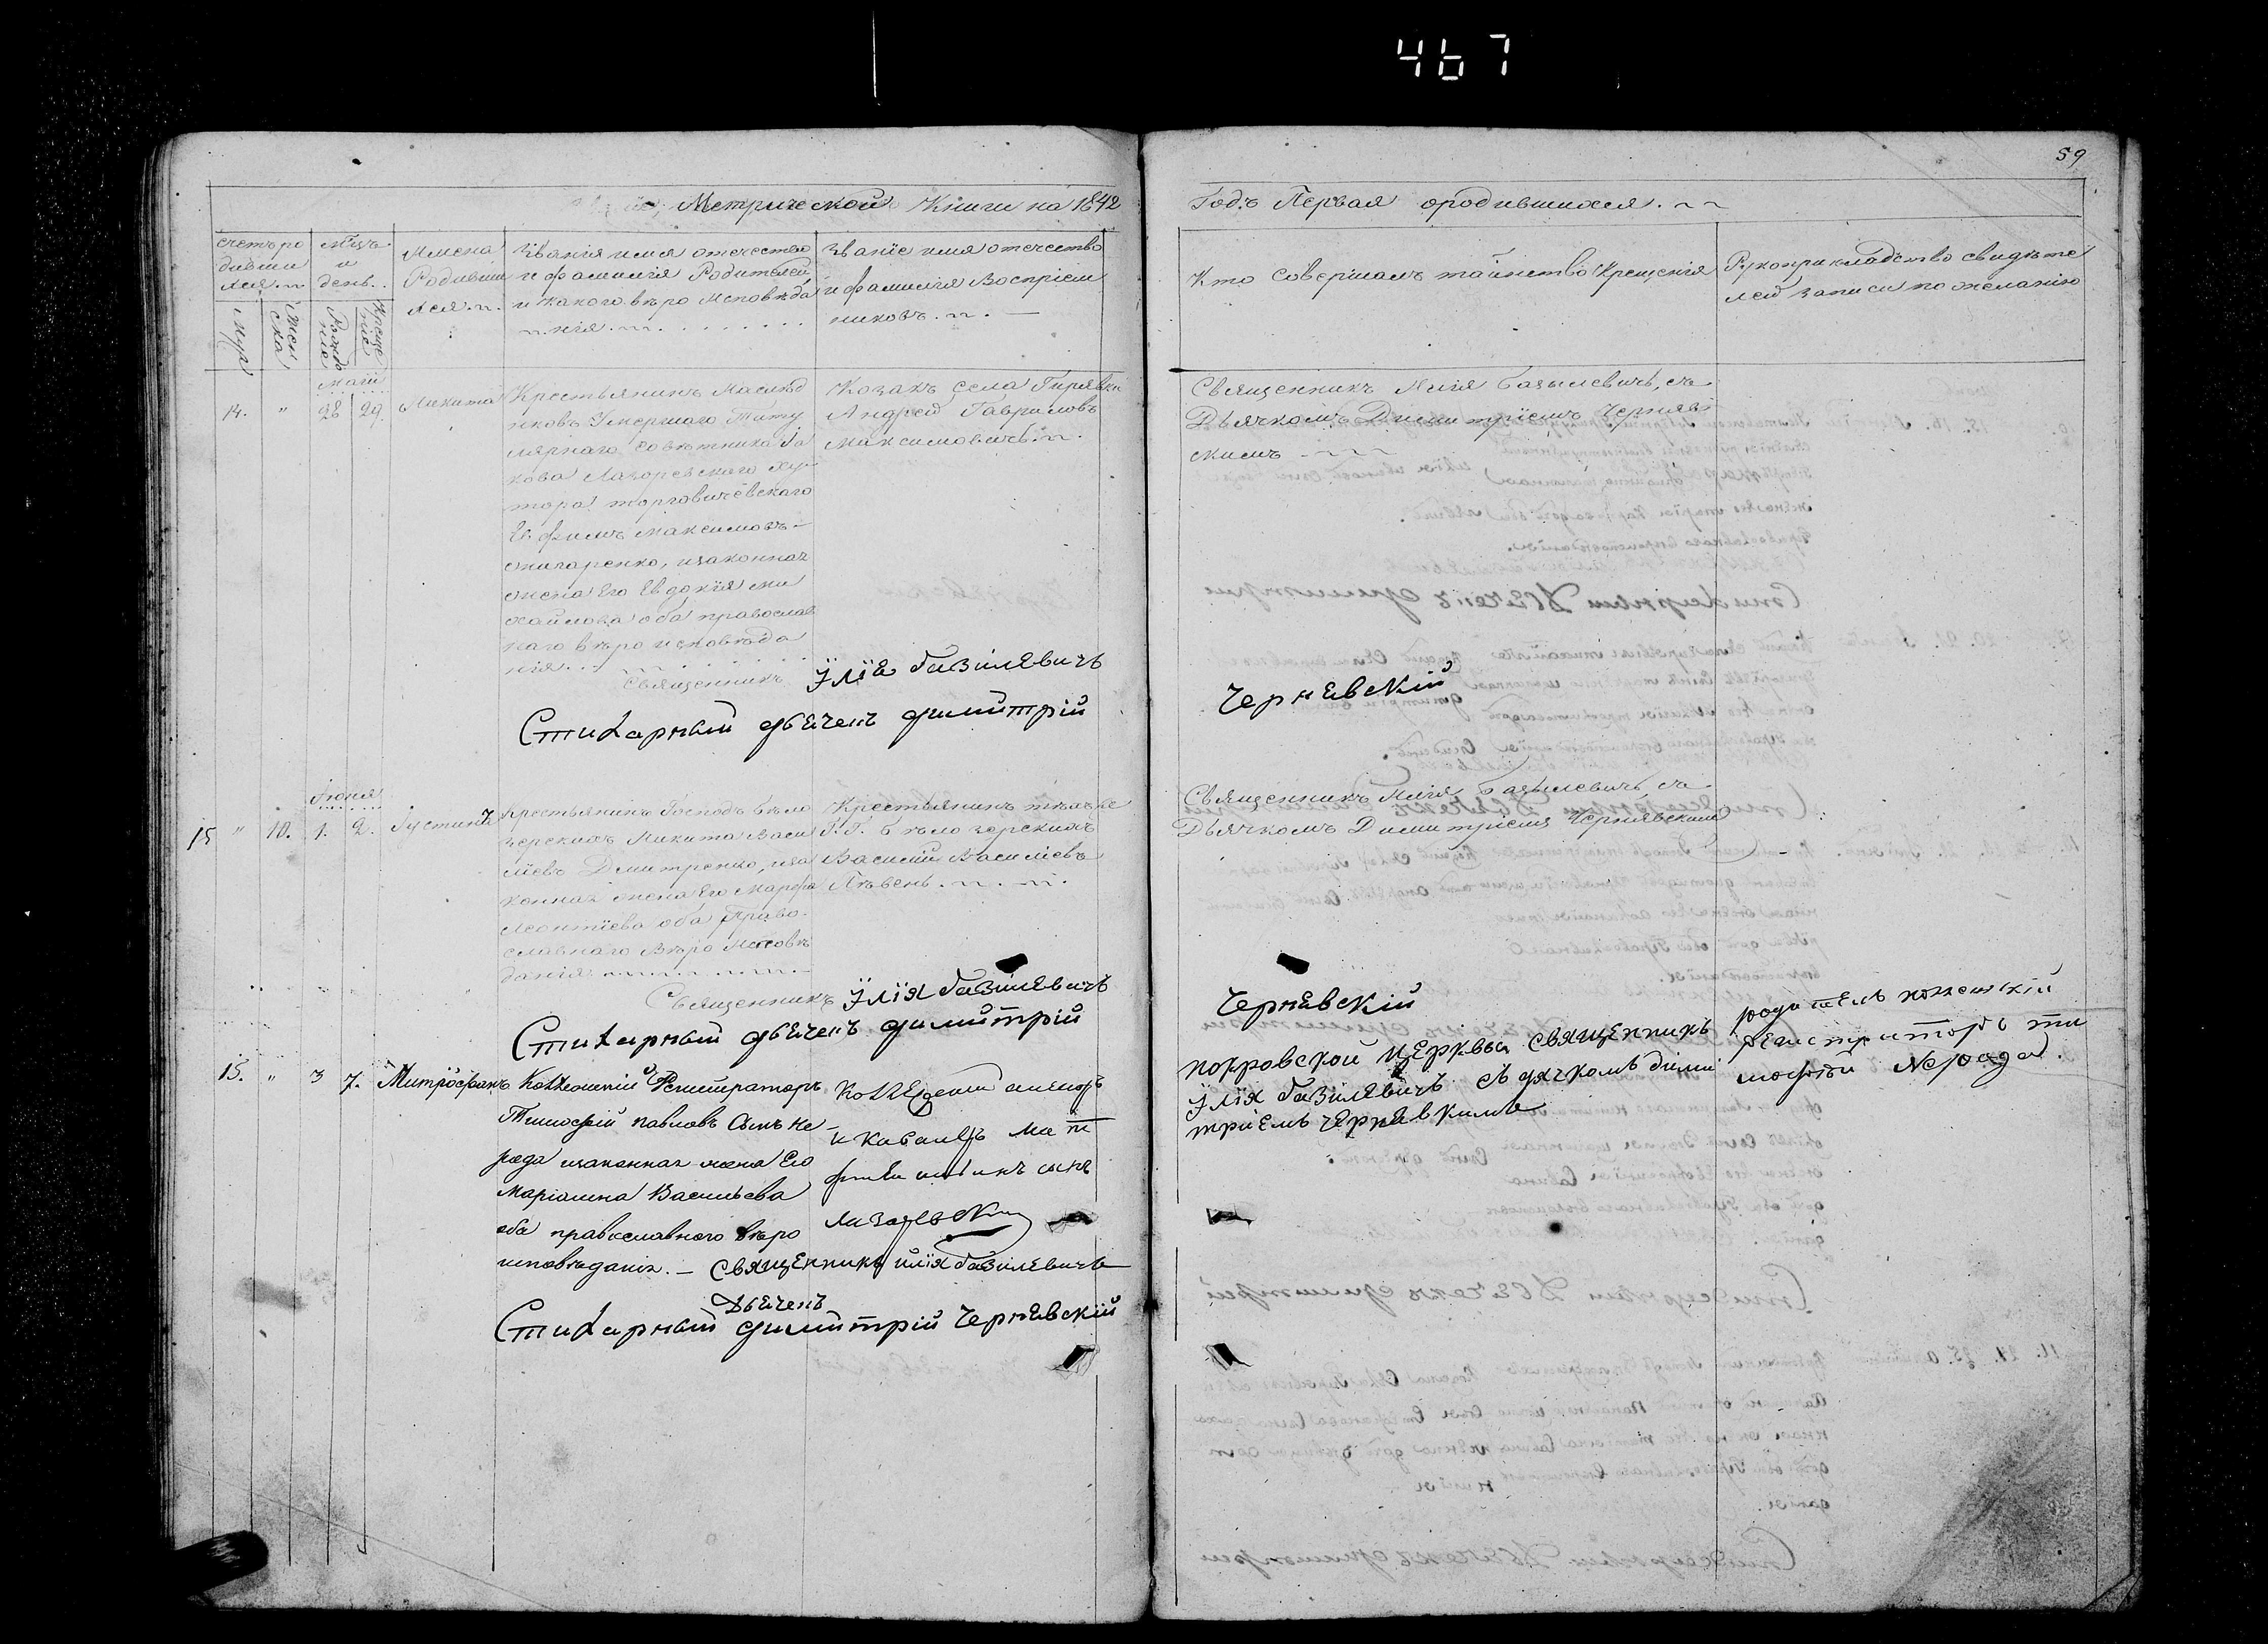 467
59
Метрической Книги на 1842
Годъ Первая ородившихся.
счетъ ро
дивши
хся
муж
женска
мѣцъ
и
день
Рожде
ніе
Креще
ніе
Имена
Родивши
хся
Званія имя отечество
и фамилія Родителей
и какого вѣро Исповѣда
нія
Званіе имя отечество
и фамилія Воспріем
никовъ
Кто Совершалъ таинство Крещенія
Рукоприкладство свидѣте
лей записи по желанію
Маія
14. " 28 29 Никита
Крестьянинъ Наслѣд
никовъ Умершаго Титу
лярнаго Совѣтника
Лазоревскаго Ху
тора торговичевскаго
Ефимъ Максимовъ
законная
жена Его Евдокія Ми
хайлова оба православ
наго вѣро исповѣда
нія
Козакъ Села Гирявки
Андрей Гавриловъ
Максимовичь
Священникъ Илія Базилевичь, съ
Дьячкомъ Димитріемъ Чернявс
кимъ
Священникъ Ілія базілевичъ
Стихарный дьячекъ димитрій
Чернявскій
Іюня
15 " 10. 1. 2. Іустинъ
Крестьянинъ Господъ бѣло
зерскихъ Никита Васи
ліевъ Дмитренко, иза
конная жена Его Марфа
Леонтіева оба Право
славнаго Вѣро Исповѣ
данія
Крестьянинъ тѣхъ же
Г.Г. бѣлозерскихъ
Василій Василіевъ
Пѣвень
Священникъ Илія Базилевичь, съ
Дьячкомъ Димитріемъ Чернявскимъ
Священникъ Ілія базілевичъ
Стихарный дьячекъ димитрій
Чернявскій
15. " 3 7. Митрофанъ
Коллежскій Регистраторъ
Тимофей павловъ Сынъ Не
рода изаконная жена Его
Маріамна Васильева
оба православного вѣро
исповѣданія.
и кавалеръ Мат
сынъ
покровской церквы священникъ
Ілія базілевичъ съ дячкомъ дими
тріемъ чернявкимъ
родитель коллежскій
регистраторъ ти
мофей Нерода.
Священникъ илія базілевичъ
Дьячекъ
Стихарный димитрій Чернявскій